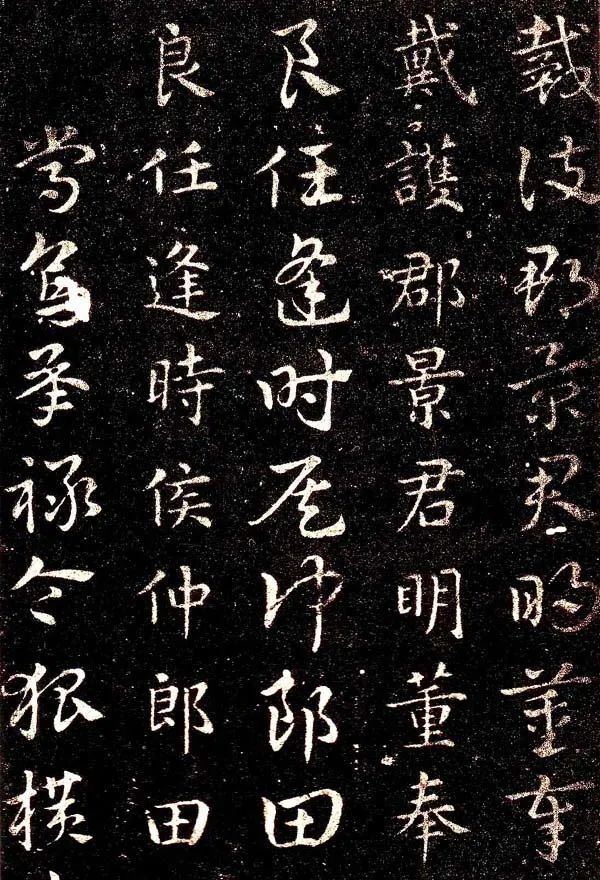 戴護郡景君明董奉
戴護郡景君明董奉
良任逢時侯仲郎田
良任逢時侯仲郎田
常烏承祿令狐橫